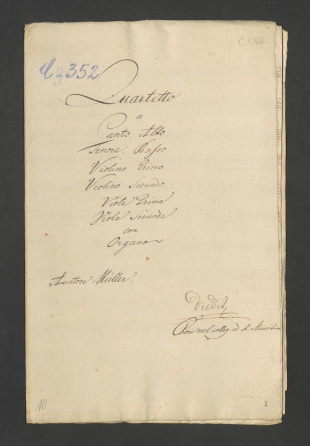 352
Quartetto
a
Canto Alto
Tenore Basso
Violino Primo
Violino Secundo
Viola Prima
Viola Secunda
con
Organo
Anton Müller.
10